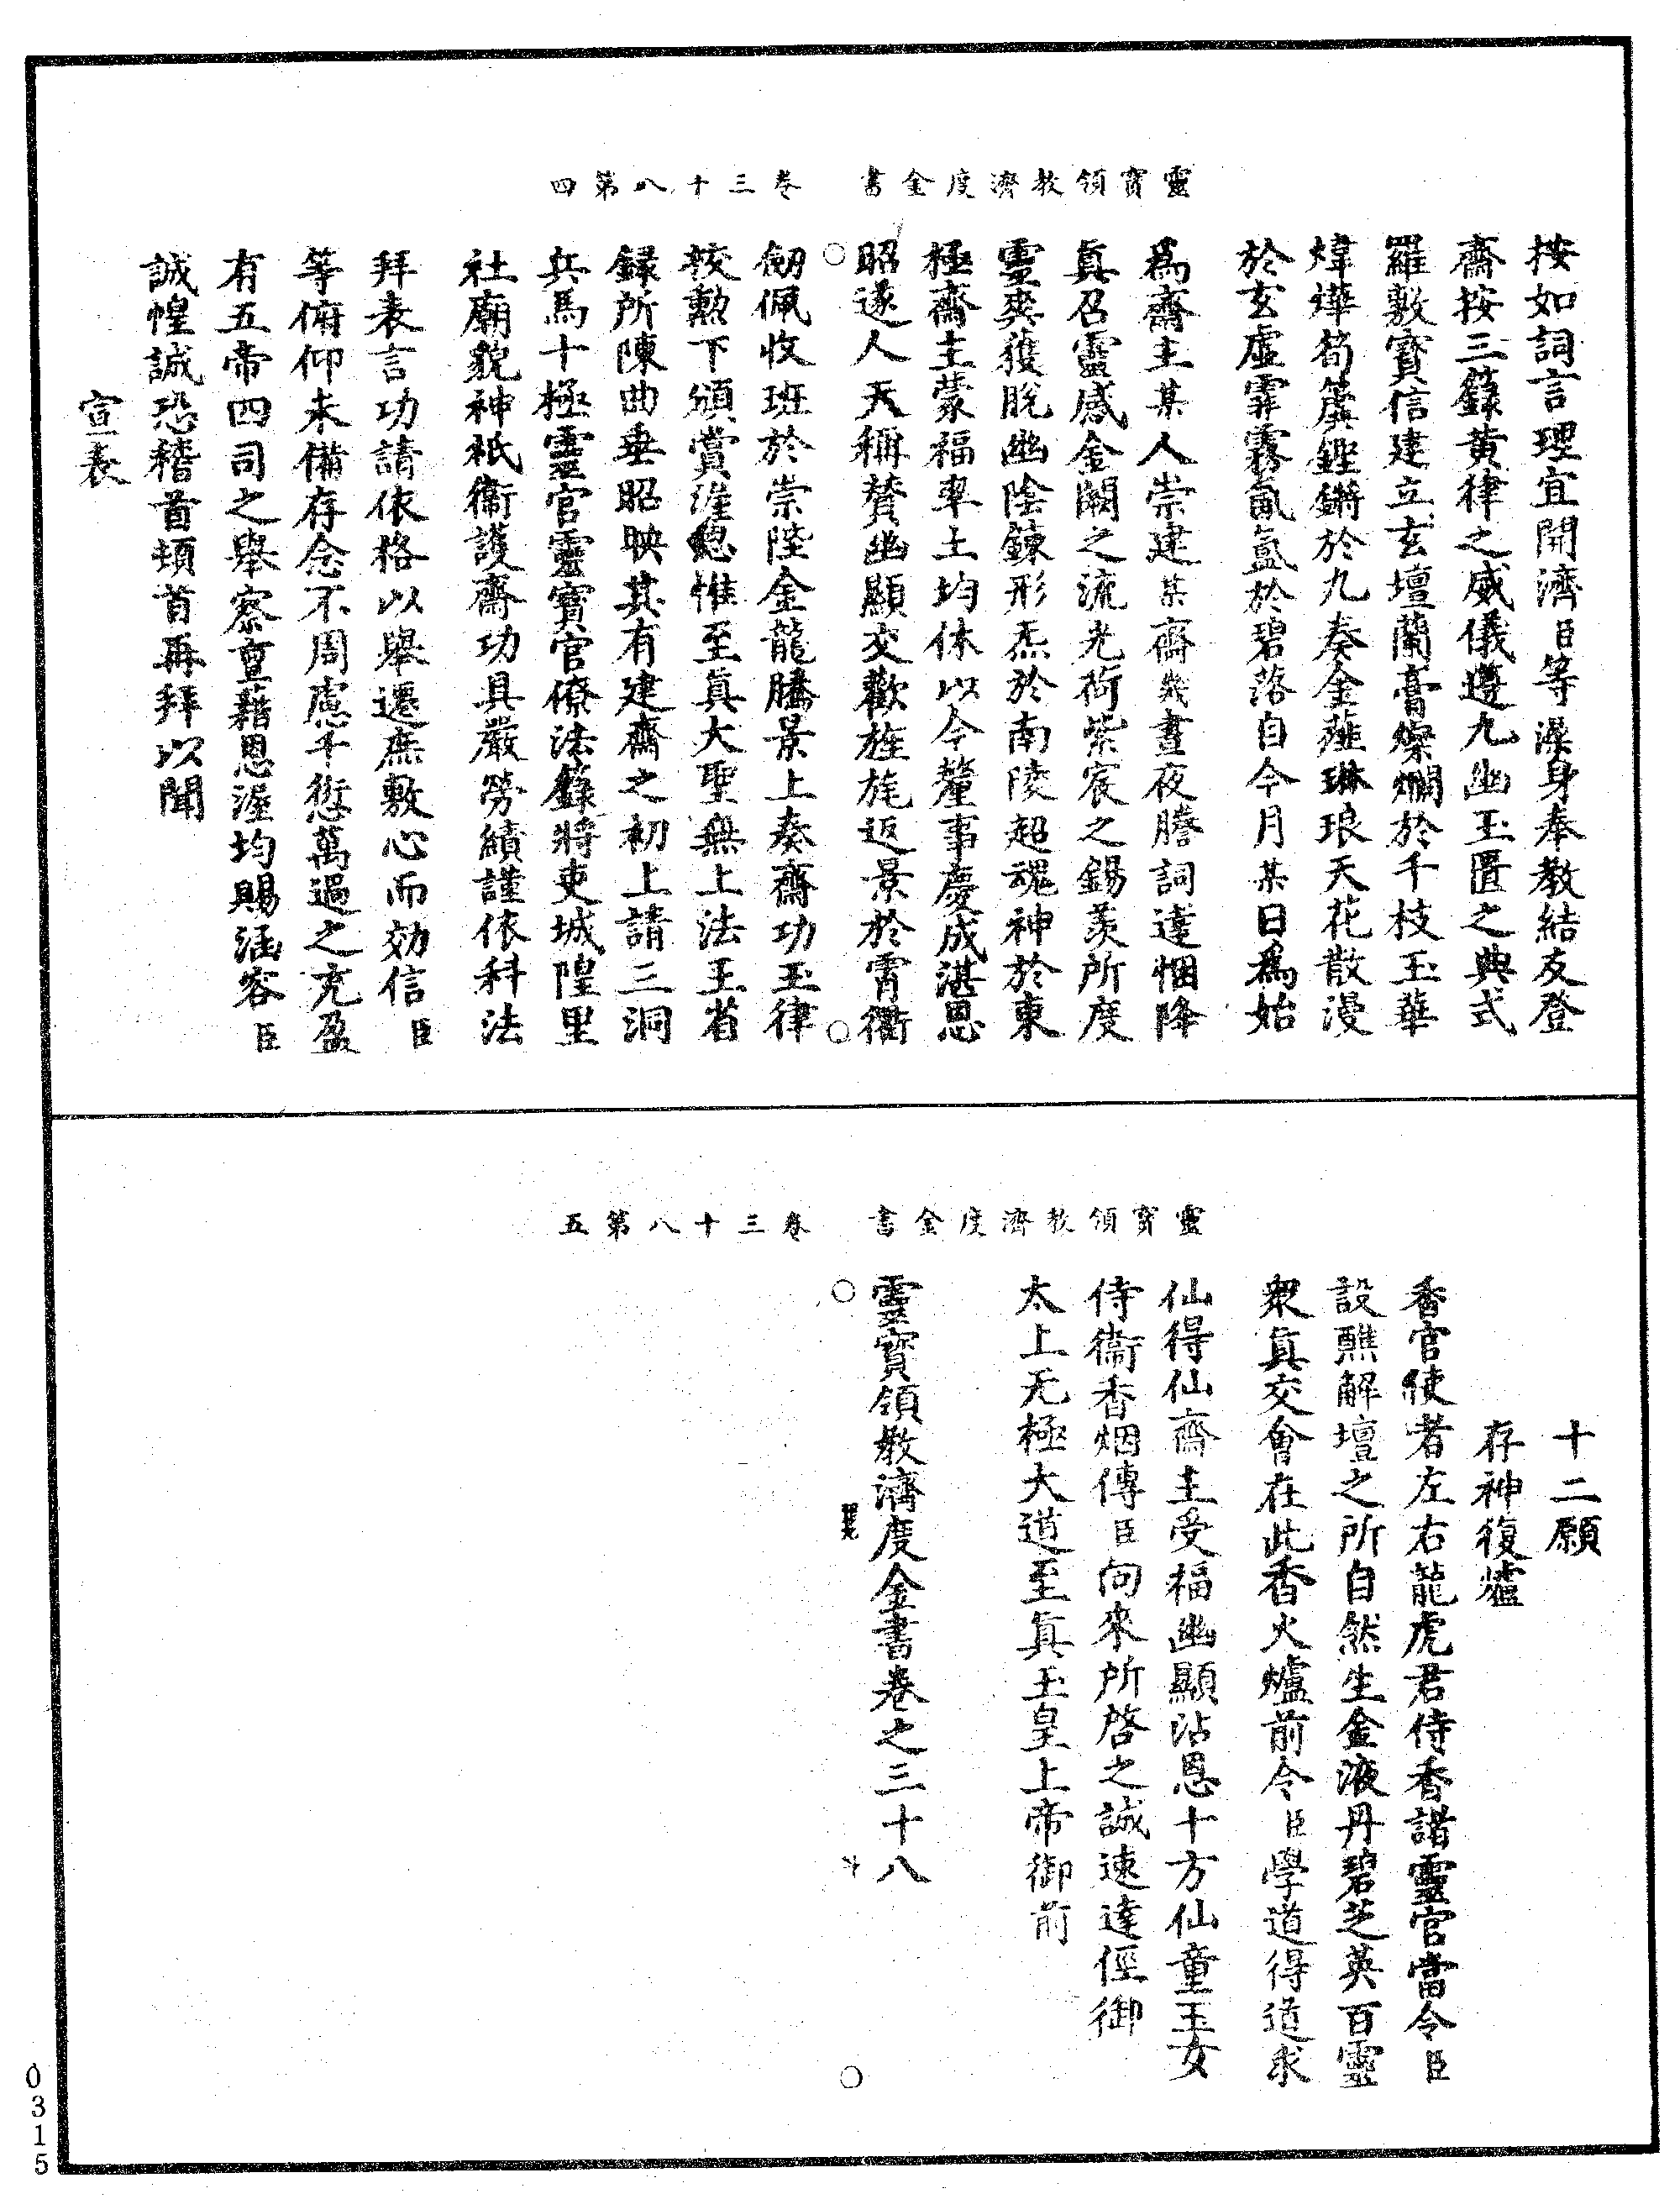 靈寶領教濟度金書　卷三十八第四
按如詞言理宜開濟臣等澡身奉教結友登
齋按三籙黃律之威儀遵九幽玉匱之典式
羅敷寶信建立玄壇蘭膏燦爛於千枝玉華
煒燁筍簴鏗鏘於九奏金薤琳琅天花散漫
於玄虛霏霧氤氳於碧落自今月某日爲始
爲齋主某人崇建某齋幾晝夜謄詞達悃降
眞召靈感金闕之流光荷紫宸之錫羨所度
靈爽獲脫幽陰鍊形炁於南陵超魂神於東
極齋主蒙福率土均休以今釐事慶成湛恩
昭遂人天稱贊幽顯交歡旌旄返景於霄衢
劒佩收班於崇陛金龍騰景上奏齋功玉律
校勳下頒賞渥惚惟至眞大聖無上法王省
錄所陳曲垂昭映其有建齋之初上請三洞
兵馬十極靈官靈寶官僚法籙將吏城隍里
社廟貌神祇衞護齋功具嚴勞績謹依科法
拜表言功請依格以舉遷庶敷心而効信臣
等俯仰未備存念不周慮千愆萬過之充盈
有五帝四司之舉察亶藉恩渥均賜涵容臣
誠惶誠恐稽首頓首再拜以聞
宣表
靈寶領教濟度金書　卷三十八第五
十二願
存神復爐
香官使者左右龍虎君侍香諸靈官當令臣
設醮解壇之所自然生金液丹碧芝英百靈
衆眞交會在此香火爐前令臣學道得道求
仙得仙齋主受福幽顯沾恩十方仙童玉女
侍衞香烟傳臣向來所啓之誠速達徑御
太上无極大道至眞玉皇上帝御前
靈寶領教濟度金書卷之三十八
0315